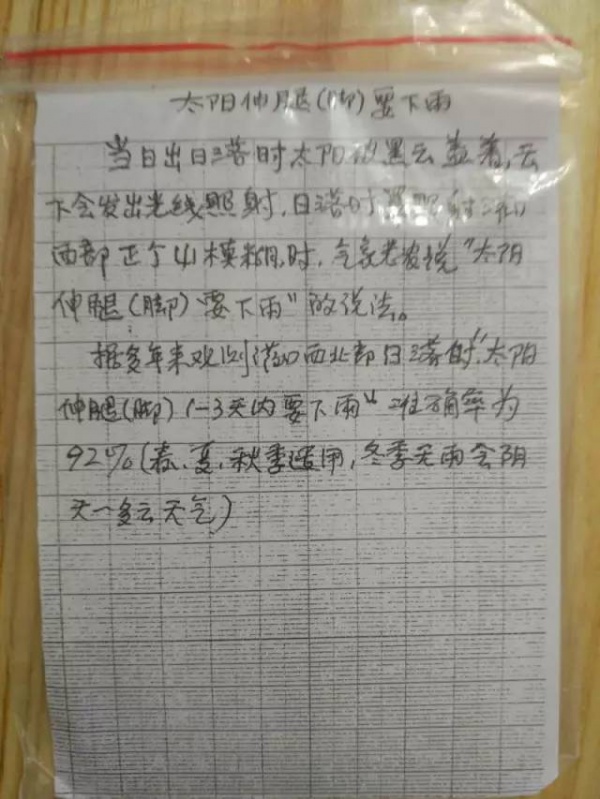 太阳伸腿(脚)要下雨
当日出日落时太阳被黑云盖着,云
下会发出光线照射,日落时 照射
西部 个山模糊时,气象老 说"太阳
伸腿(脚)要下雨"的说法。
据多年来观测 西北部日落时"太阳
伸腿(脚)1-3天内要下雨"准确率为
92%(春、夏、秋季适用,冬季无雨会阴
天一多云天气)